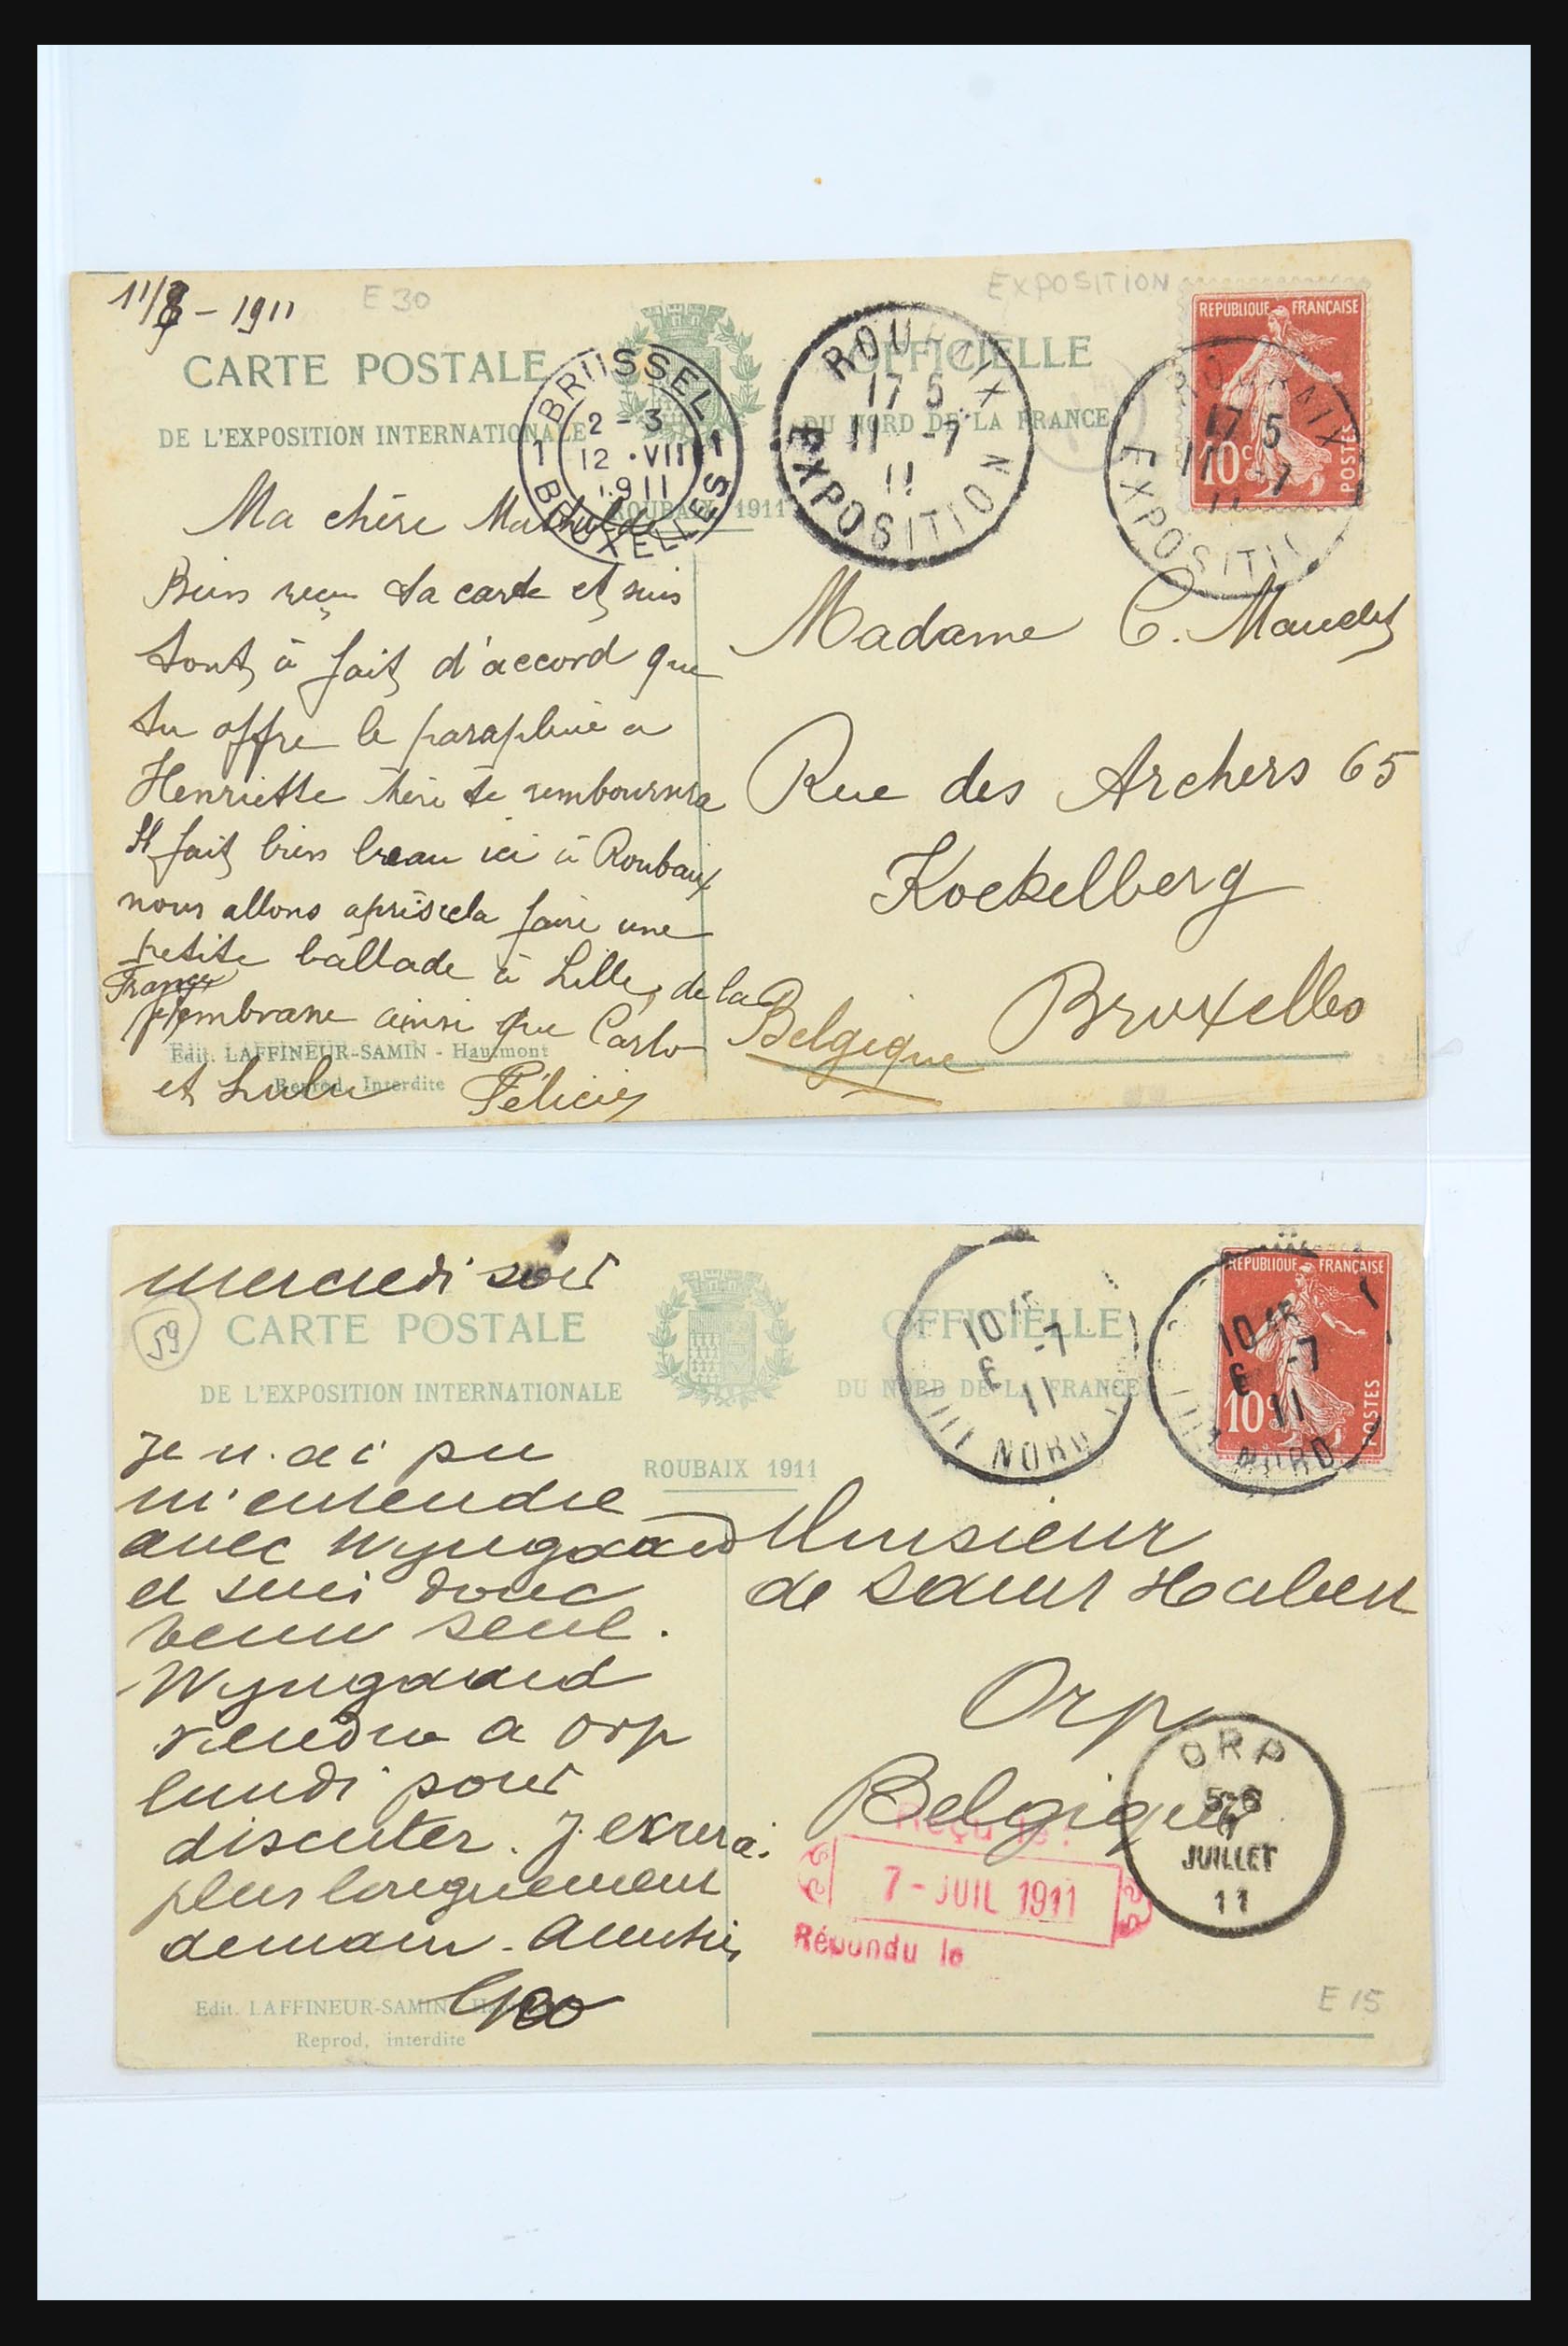 11/7 - 1911
E 30
EXPOSITION
CARTE POSTALE OFFICIELLE
DE L'EXPOSITION INTERNATIONALE DU NORD DE LA FRANCE
ROUBAIX 1911
BRUSSEL
1 2 - 3 1
12 · VII
1911
BRUXELLES
ROUBAIX
17 5
11 -7
11
EXPOSITION
REPUBLIQUE FRANÇAISE
10c
POSTES
ROUBAIX
17 5
11 -7
11
EXPOSITI
Ma chère Mathilde
Bien reçu ta carte et suis
tout à fait d'accord que
tu offre le parapluie a
Henriette te remboursera
Il fait bien beau ici à Roubaix
nous allons après cela faire une
petite ballade à Lille, de la
France
J'embrasse ainsi que Carlo
et Lulu Félicie
Madame C.
Rue des Archers 65
Koekelberg
Bruxelles
Belgique
Edit. LAFFINEUR-SAMIN - Hautmont
Reprod. Interdite
mercredi soir
59
CARTE POSTALE OFFICIELLE
DE L'EXPOSITION INTERNATIONALE DU NORD DE LA FRANCE
ROUBAIX 1911
10
6 -7
11
NORD
REPUBLIQUE FRANÇAISE
10c
POSTES
10
6 -7
11
NORD
Je n'ai pu
m'entendre
avec Wyngaard
et suis donc
venu seul.
Wyngaard
viendra a Orp
lundi pour
discuter. J'ecrirai
plus longuement
demain.
Geo
Monsieur
de Saint Hubert
Orp
Belgique
ORP
5-6
7
JUILLET
11
Reçu le :
7 - JUIL 1911
Répondu le
Edit. LAFFINEUR-SAMIN
Reprod, interdite
E 15